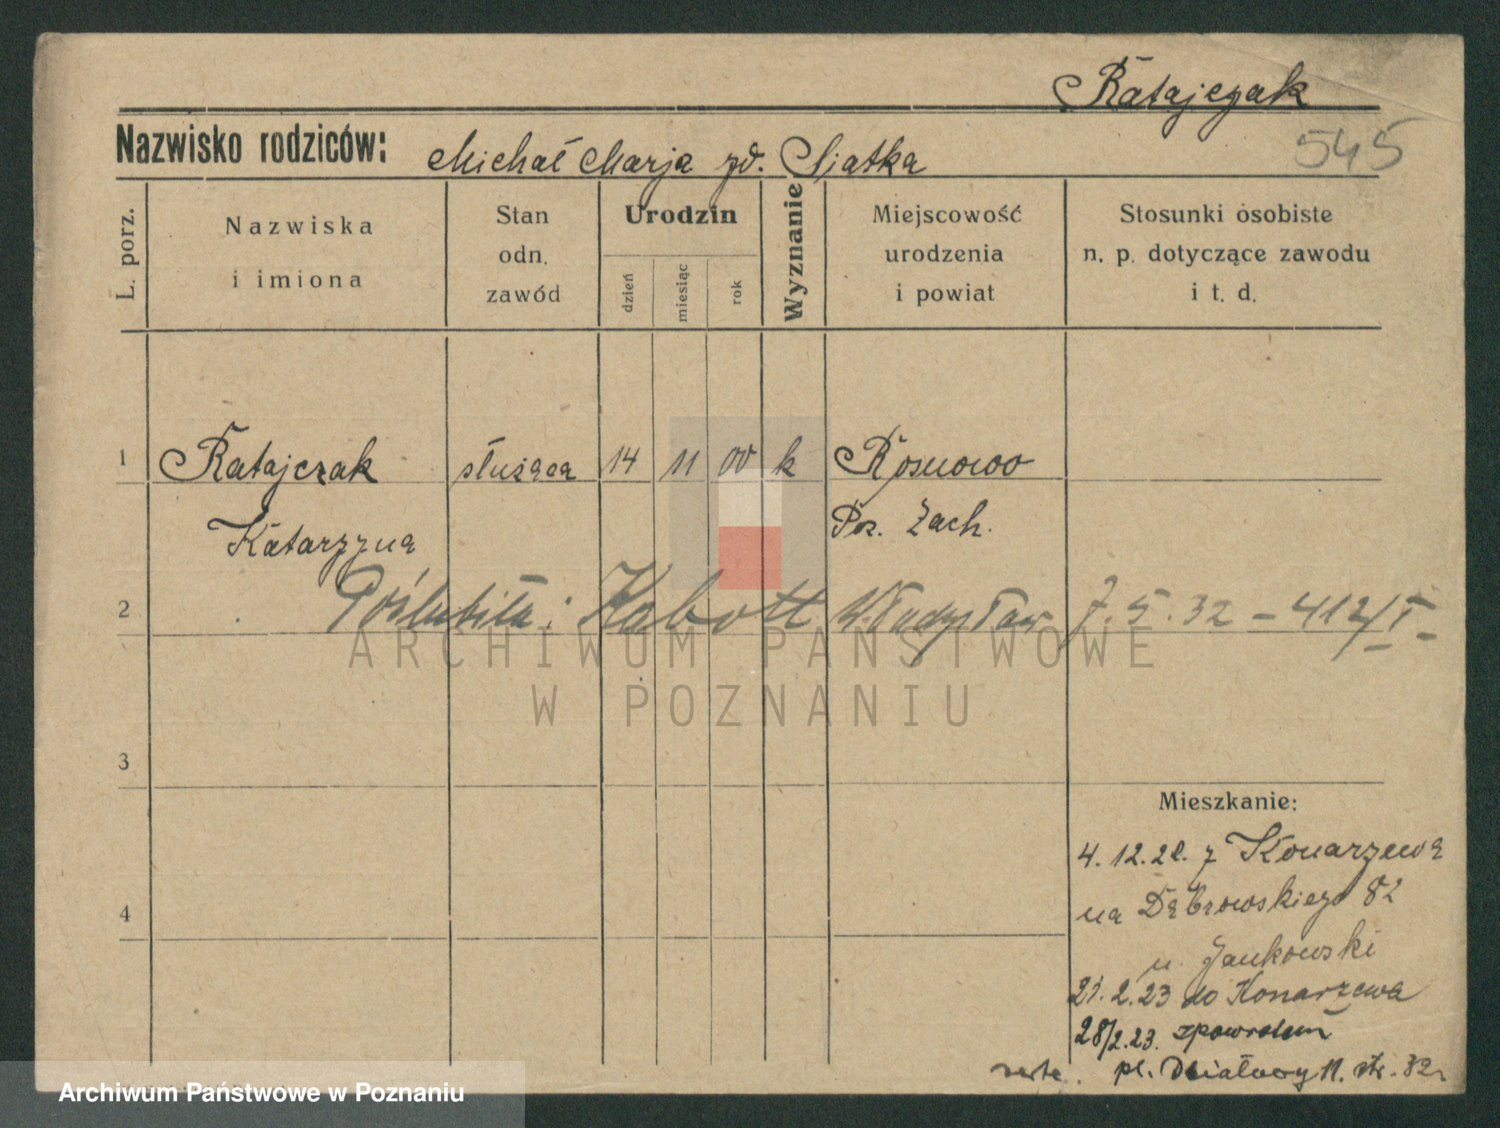 Ratajczak
545
Nazwisko rodziców: Michał Marja zd. Siatka
L. porz.
Nazwiska
i imiona
Stan
odn.
zawód
Urodzin
dzień
miesiąc
rok
Wyznanie
Miejscowość
urodzenia
i powiat
Stosunki osobiste
n. p. dotyczące zawodu
i t. d.
1 Ratajczak służąca 14 11 00 k Rosnowo
Katarzyna Poz. Zach.
2 Poślubiła: Kabott Władysław 7.5.32 – 412/I
3
Mieszkanie:
4
4.12.22. z Konarzewa
na Dąbrowskiego 82
u. Jankowski
21.2.23 do Konarzewa
28/2.23. zpowrotem
verte. pl. Działowy 11.
ARCHIWUM PAŃSTWOWE
W POZNANIU
Archiwum Państwowe w Poznaniu